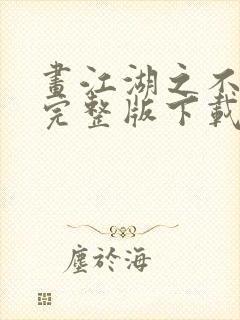 畫江湖之不
完整版下載
塵於海